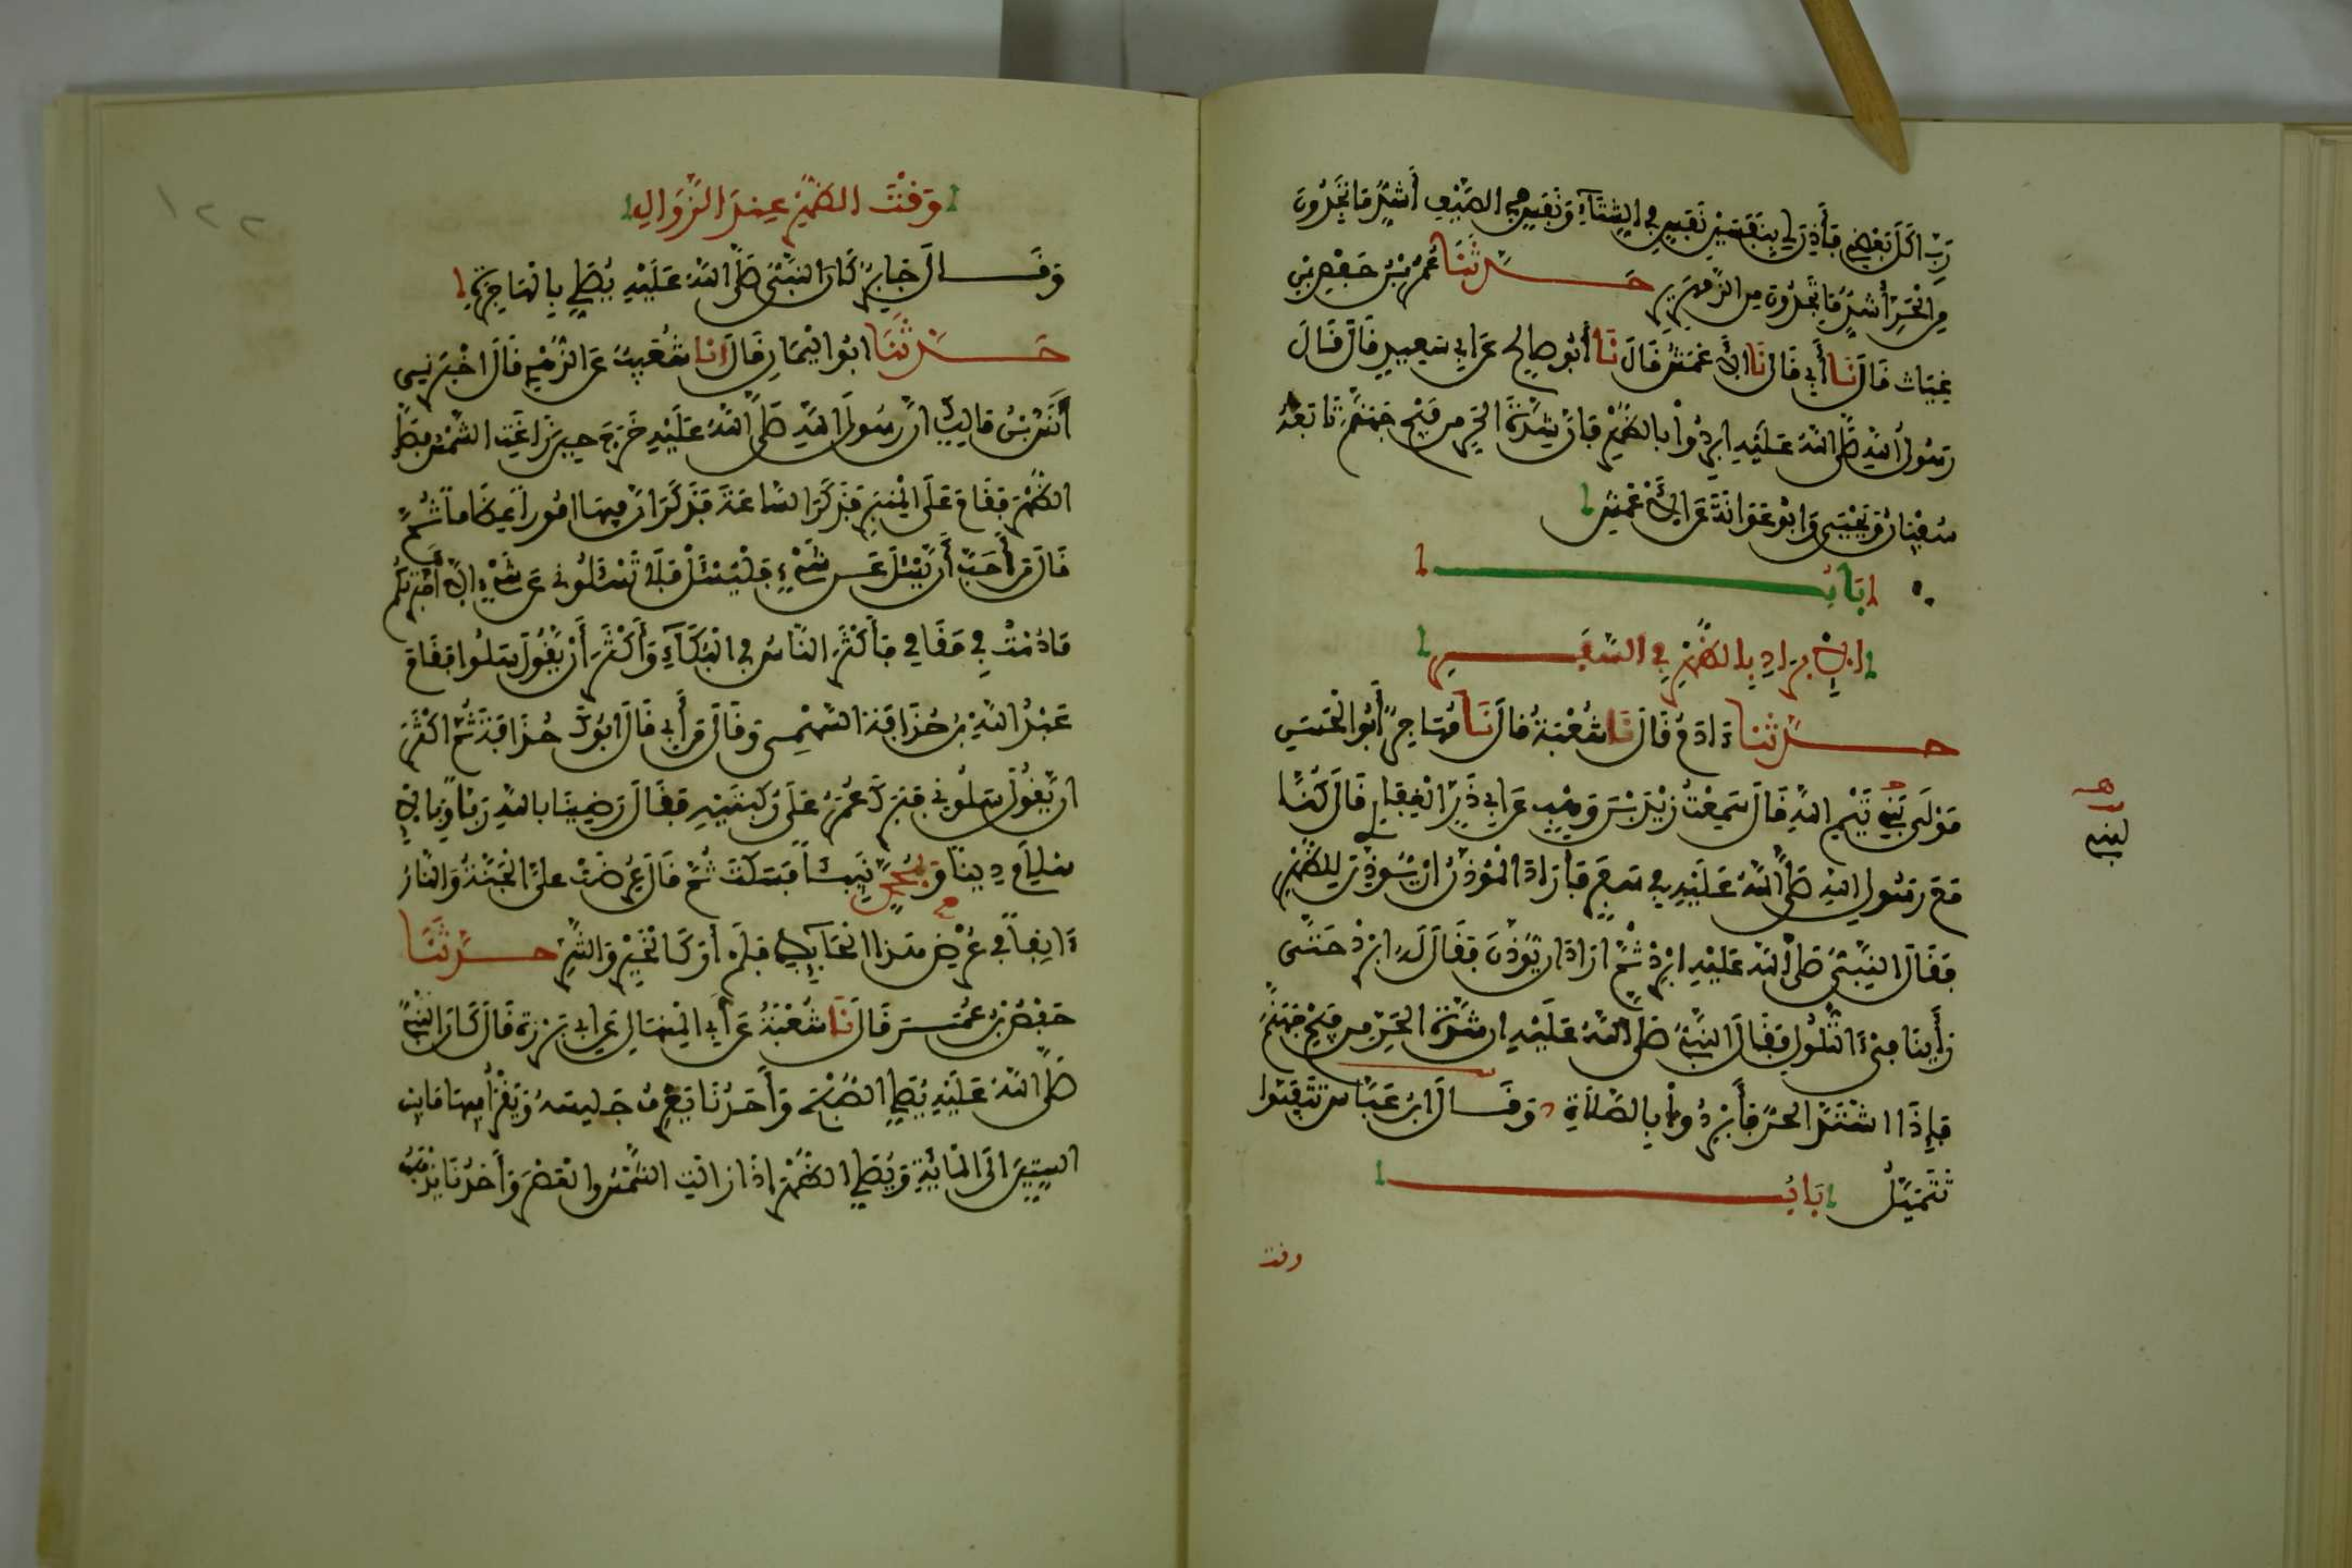 رب اكل بعضي بعضا فأذن لي بنفسين نفس في الشتاء ونفس في الصيف أشد ما تجدون
من الحر أشد ما تجدون من الزمهرير حدثنا عمر بن حفص بن
غياث قال نا أبي قال نا الأعمش قال نا أبو صالح عن أبي سعيد قال قال
رسول الله صلى الله عليه ابردوا بالظهر فإن شدة الحر من فيح جهنم تابعه
سفيان ويحيى وابو عوانة عن الأعمش
باب
الإبراد بالظهر في السفر
حدثنا ءادم قال نا شعبة قال نا مهاجر أبو الحسن
مولى بني تيم الله قال سمعت زيد بن وهب عن أبي ذر الغفاري قال كنا
لبني
مع رسول الله صلى الله عليه في سفر فأراد المؤذن ان يؤذن للظهر
فقال النبي صلى الله عليه ابرد ثم اراد ان يؤذن فقال له ابرد حتى
رأينا فيء التلول فقال النبي صلى الله عليه ان شدة الحر من فيح جهنم
فإذا اشتد الحر فأبردوا بالصلاة وقال ابن عباس تتفيئوا
تتميل باب
وقت
١٢٢
وقت الظهر عند الزوال
وقال جابر كان النبي صلى الله عليه يصلي بالهاجرة
حدثنا ابو اليمان قال انا شعيب عن الزهري قال اخبرني
أنس بن مالك ان رسول الله صلى الله عليه خرج حين زاغت الشمس فصلى
الظهر فقام على المنبر فذكر الساعة فذكر ان فيها امورا عظاما ثم
قال من أحب أن يسئل عن شيء فليسئل فلا تسئلوني عن شيء الا أخبرتكم
ما دمت في مقامي فأكثر الناس في البكاء وأكثر أن يقول سلوا فقام
عبد الله بن حذافة السهمي وقال من أبي قال ابوك حذافة ثم اكثر
ان يقول سلوني فبرك عمر على ركبتيه فقال رضينا بالله ربا وبالإ
سلام دينا وبمحمد نبيا فسكت ثم قال عرضت علي الجنة والنار
ءانفا في عرض هذا الحايط فلم أر كالخير والشر حدثنا
حفص بن عمر قال نا شعبة عن أبي المنهال عن ابي برزة قال كان النبي
صلى الله عليه يصلي الصبح وأحدنا يعرف جليسه ويقرأ فيها ما بين
الستين الى المائة ويصلي الظهر اذا زالت الشمس والعصر وأحدنا يذهب